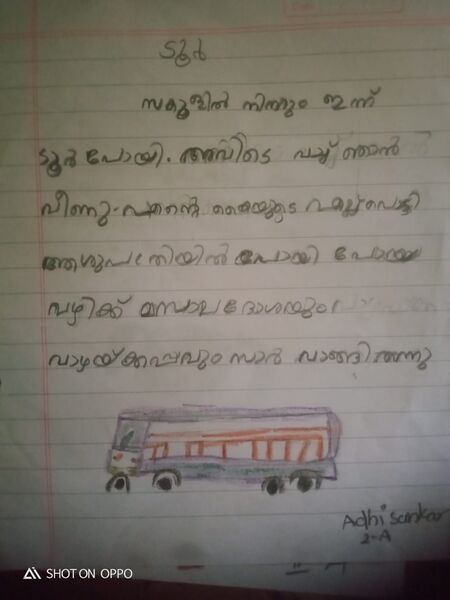 ടൂർ
സകൂളിൽ നിന്നും ഇന്ന്
ടൂർ പോയി. അവിടെ വച്ച് ഞാൻ
വീണു. എൻ്റെ കൈയുടെ എല്ല് പൊട്ടി
ആശുപത്രിയിൽ പോയി പോയ
വഴിക്ക് മസാലദോശയും
വാഴയ്ക്കപ്പവും സാർ വാങ്ങി തന്നു
Adhi Sankar
2-A
SHOT ON OPPO